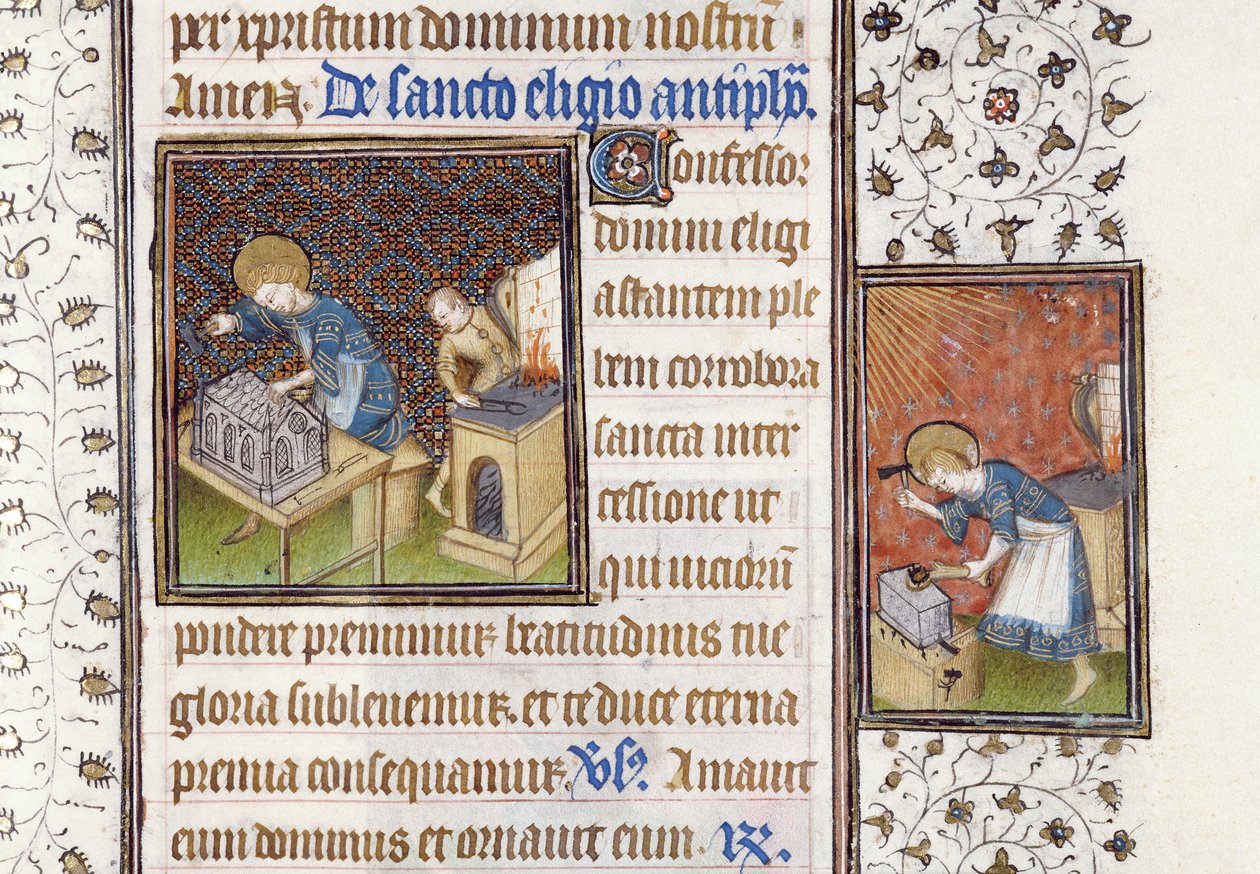 per xpristum dominum nostrū
Amen. De sancto eligio antiphō.
Confessor
domini eligi
astantem ple
bem corrobora
sancta inter
cessione ut
qui viciorū
pondere premimur beatitudinis tue
gloria sublevemur. et te duce eterna
premia consequamur. Vs. Amavit
eum dominus et ornavit eum. R.